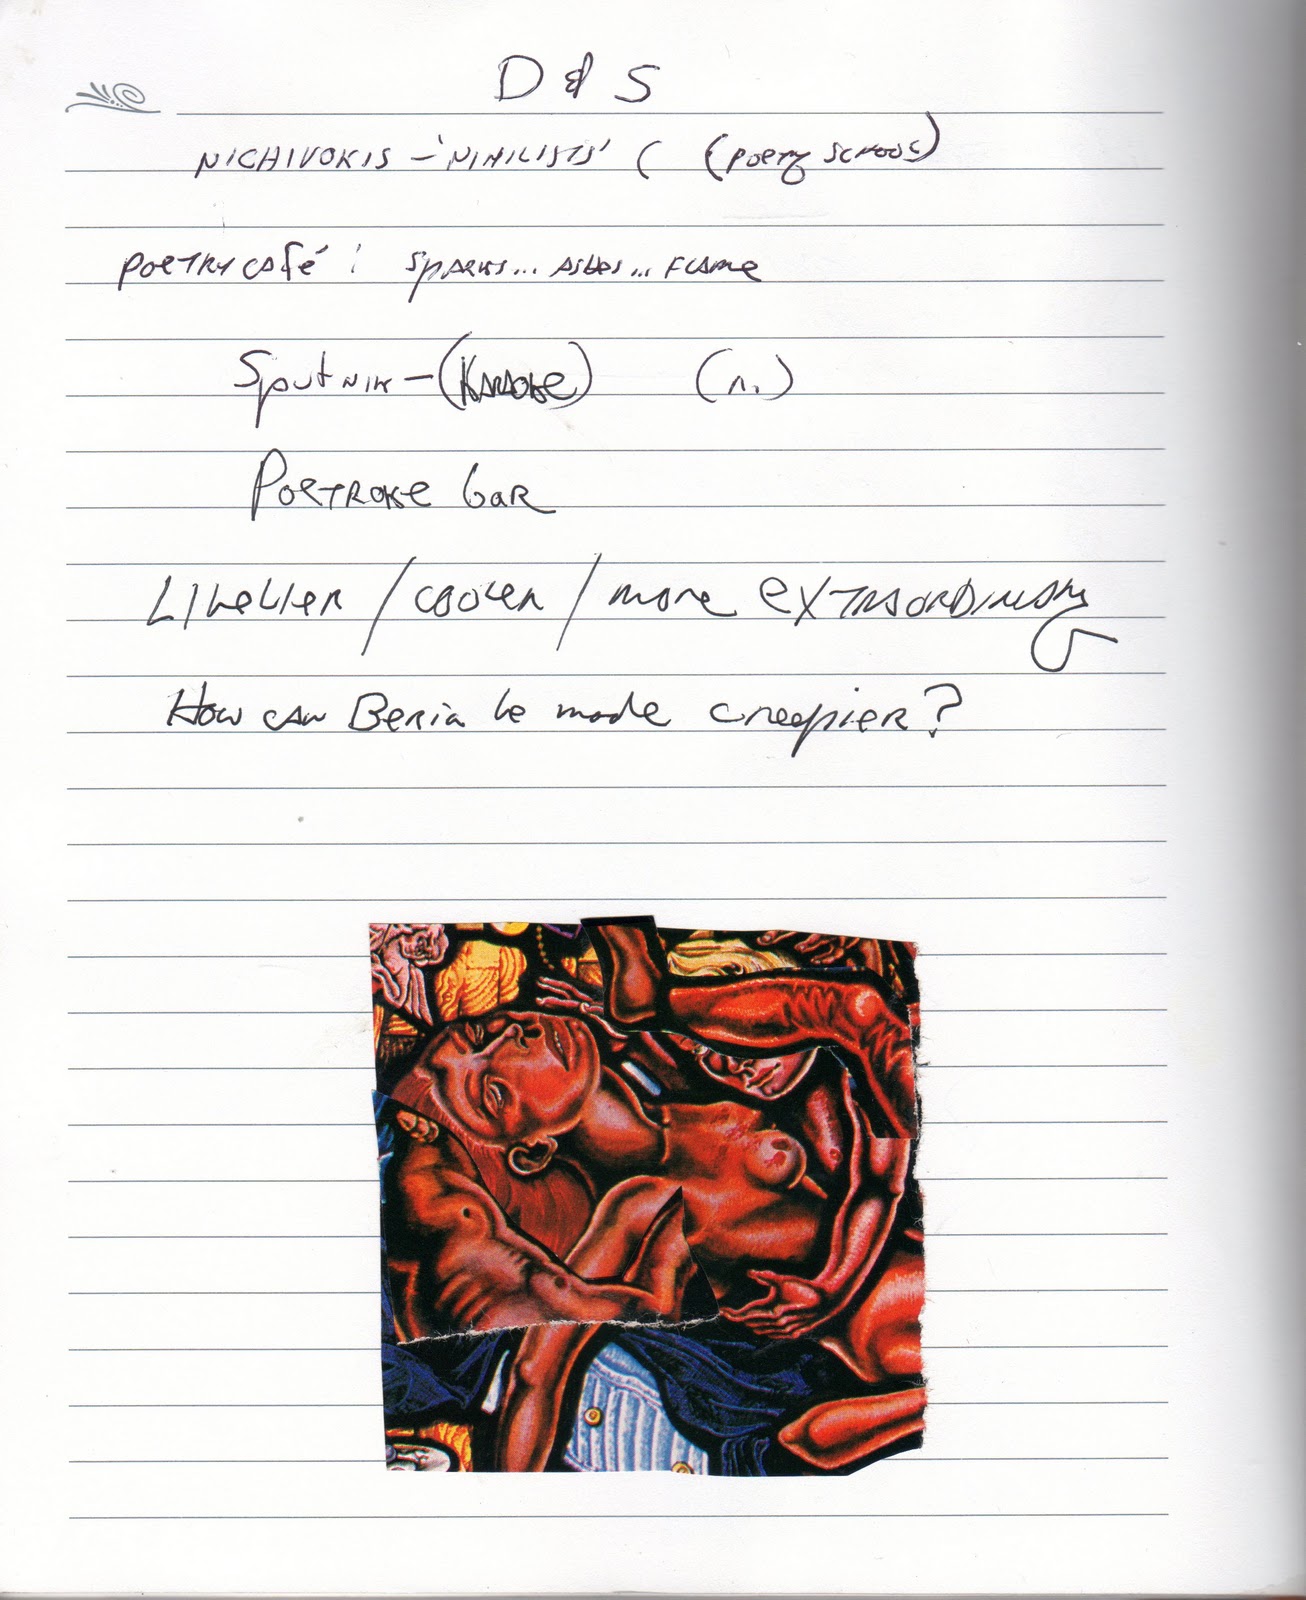 D & S
NICHIVOKIS - 'NIHILISTS' ( (POETRY SCHOOL)
POETRY CAFÉ : SPARKS... ASHES... FLAME
Sputnik - (KARAOKE) (n.)
POETROKE baR
LIVELIER / COOLER / more EXTRAORDINARY
How can Beria be made creepier?